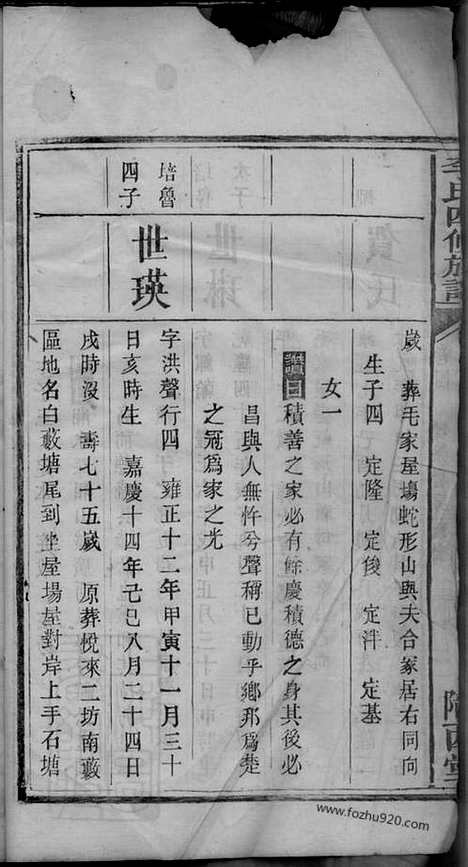 李氏四修族譜
隴西堂
歲 葬毛家屋場蛇形山與夫合冢居右同向
生子四 定隆 定俊 定泮 定基
女一
讚曰積善之家必有餘慶積德之身其後必
昌與人無忤兮聲稱已動乎鄉邦爲楚
之冠爲家之光
培魯
四子
世瑛
字洪聲行四 雍正十二年甲寅十一月三十
日亥時生 嘉慶十四年己巳八月二十四日
戌時沒 壽七十五歲 原葬悅來二坊南藪
區地名白藪塘尾到坐屋場屋對岸上手石塘
www.fozhu920.com